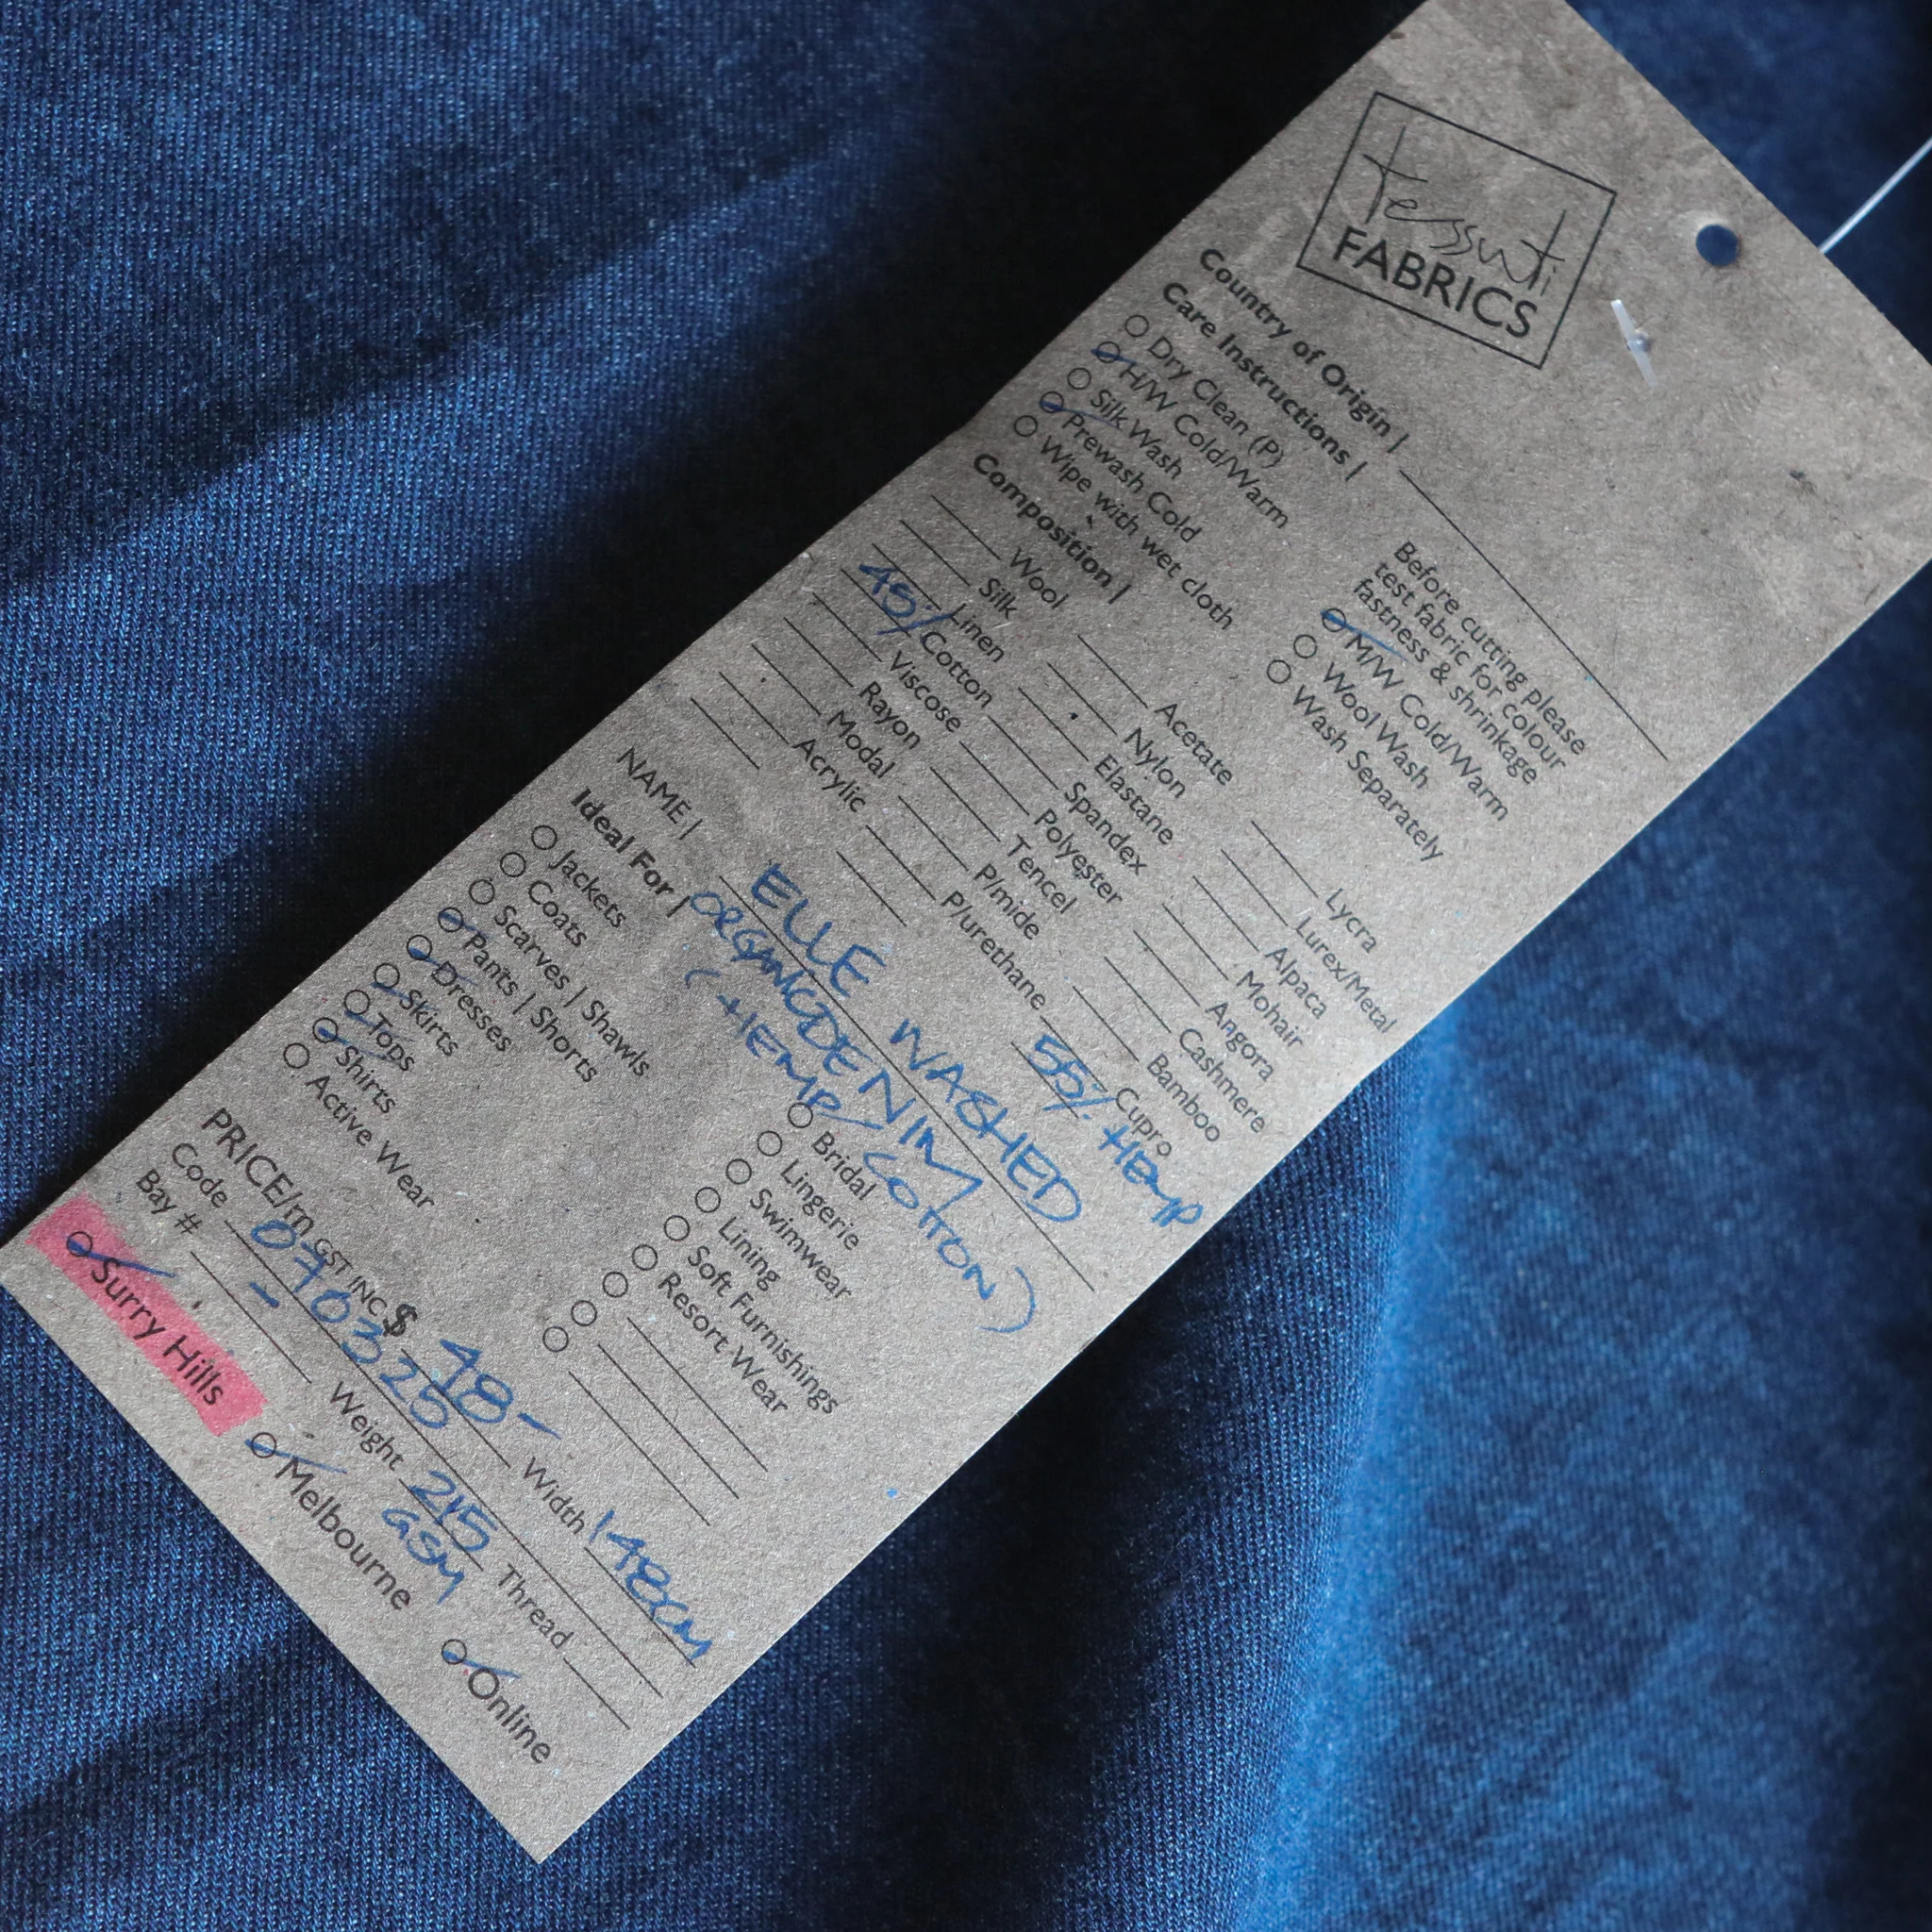 tessuti
FABRICS
Country of Origin |
Care Instructions |
Before cutting please
test fabric for colour
fastness & shrinkage
Dry Clean (P)
H/W Cold/Warm
M/W Cold/Warm
Silk Wash
Wool Wash
Prewash Cold
Wash Separately
Wipe with wet cloth
Composition |
Wool
Acetate
Lycra
Silk
Nylon
Lurex/Metal
Linen
Elastane
Alpaca
45% Cotton
Spandex
Mohair
Viscose
Polyester
Angora
Rayon
Tencel
Cashmere
Modal
P/mide
Bamboo
Acrylic
P/urethane
Cupro
55% HEMP
NAME | ELLE WASHED
ORGANIC DENIM
(HEMP/COTTON)
Ideal For |
Jackets
Bridal
Coats
Lingerie
Scarves | Shawls
Swimwear
Pants | Shorts
Lining
Dresses
Soft Furnishings
Skirts
Resort Wear
Tops
Shirts
Active Wear
PRICE/m GST INC $ 48-
Width 148cm
Code 0703325
Bay # -
Weight 215
GSM
Thread
Surry Hills
Melbourne
Online